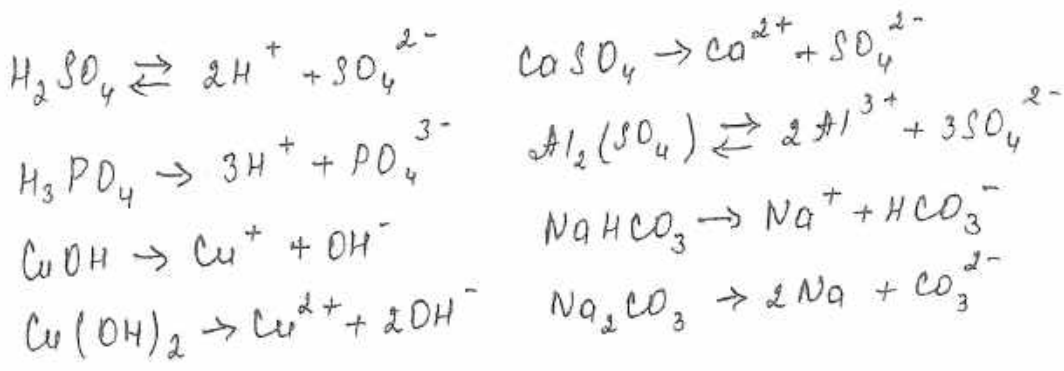 H₂SO₄ ⇄ 2H⁺ + SO₄²⁻
H₃PO₄ → 3H⁺ + PO₄³⁻
CuOH → Cu⁺ + OH⁻
Cu(OH)₂ → Cu²⁺ + 2OH⁻
CaSO₄ → Ca²⁺ + SO₄²⁻
Al₂(SO₄) ⇄ 2Al³⁺ + 3SO₄²⁻
NaHCO₃ → Na⁺ + HCO₃⁻
Na₂CO₃ → 2Na + CO₃²⁻